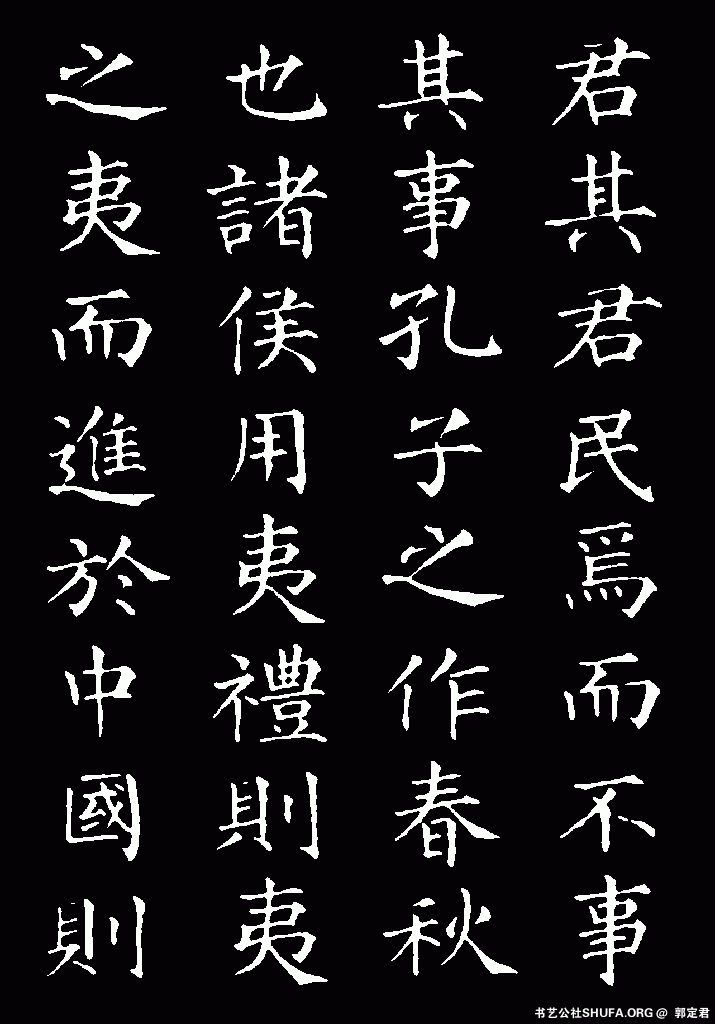 君其君民焉而不事
其事孔子之作春秋
也諸侯用夷禮則夷
之夷而進於中國則
书艺公社SHUFA.ORG @ 郭定君